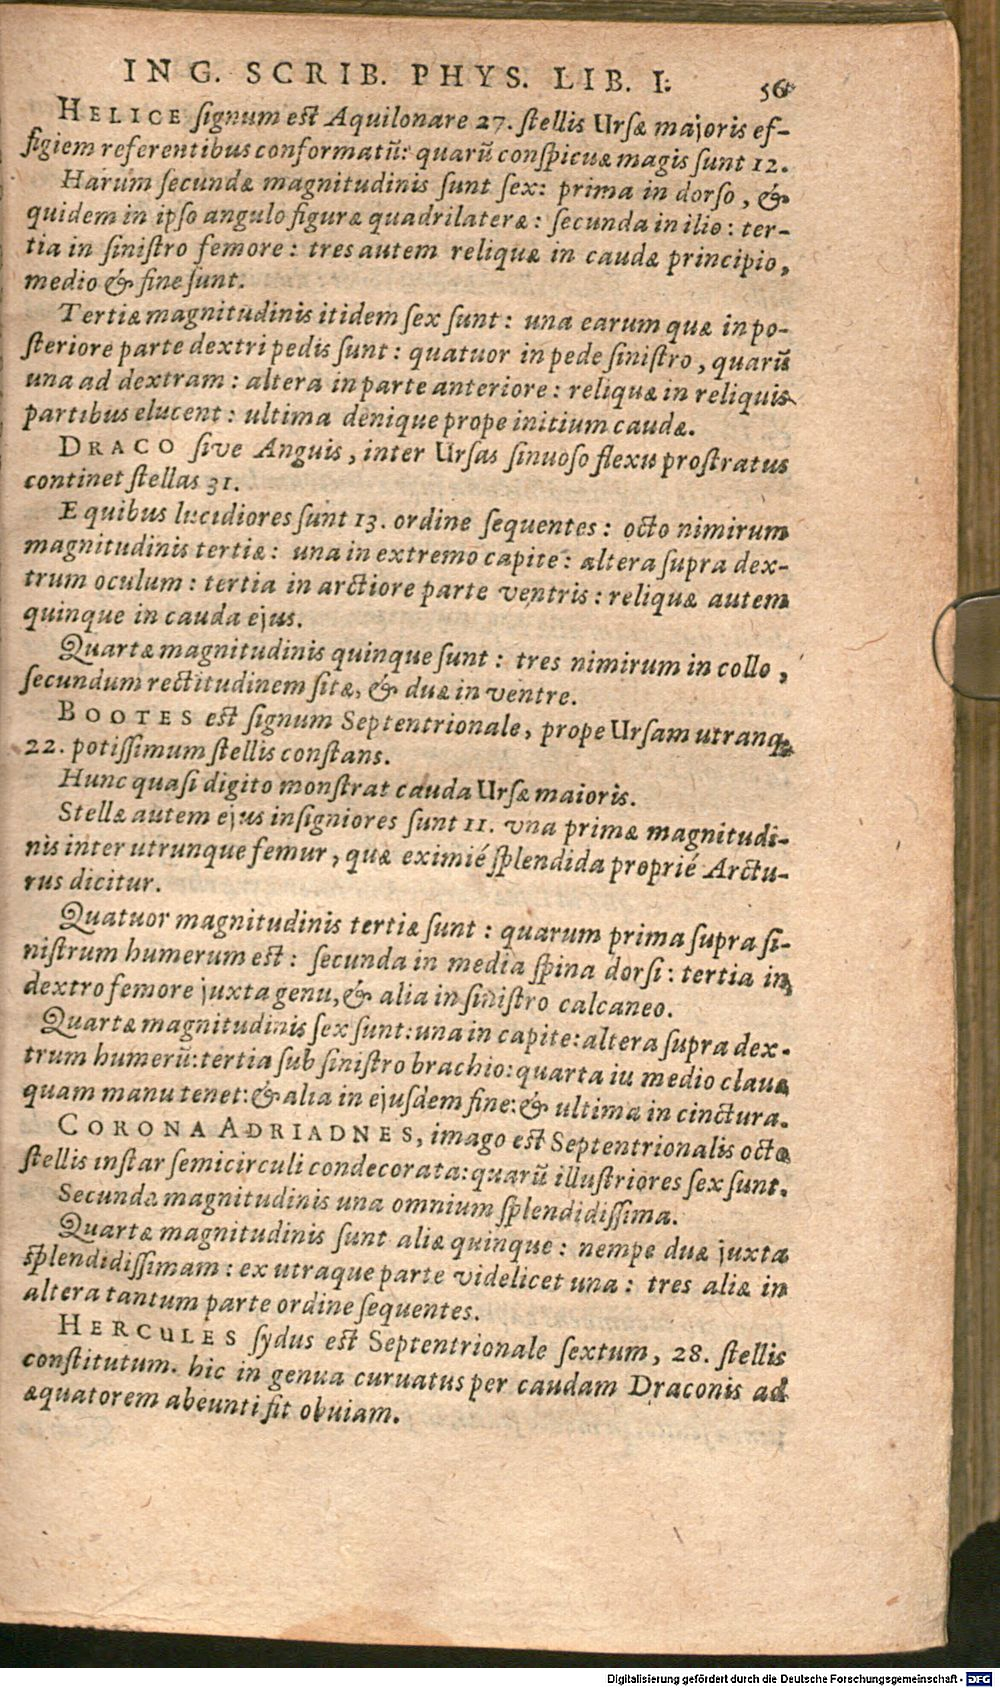 ING. SCRIB. PHYS. LIB. I. 56
HELICE ſignum eſt Aquilonare 27. ſtellis Urſæ majoris ef-
figiem referentibus conformatū: quarū conſpicuæ magis ſunt 12.
Harum ſecundæ magnitudinis ſunt ſex: prima in dorſo, &
quidem in ipſo angulo figuræ quadrilateræ: ſecunda in ilio: ter-
tia in ſiniſtro femore: tres autem reliquæ in caudæ principio,
medio & fine ſunt.
Tertiæ magnitudinis itidem ſex ſunt: una earum quæ in po-
ſteriore parte dextri pedis ſunt: quatuor in pede ſiniſtro, quarū
una ad dextram: altera in parte anteriore: reliquæ in reliquis
partibus elucent: ultima denique prope initium caudæ.
DRACO ſive Anguis, inter Urſas ſinuoſo flexu proſtratus
continet ſtellas 31.
E quibus lucidiores ſunt 13. ordine ſequentes: octo nimirum
magnitudinis tertiæ: una in extremo capite: altera ſupra dex-
trum oculum: tertia in arctiore parte ventris: reliquæ autem
quinque in cauda ejus.
Quartæ magnitudinis quinque ſunt: tres nimirum in collo,
ſecundum rectitudinem ſitæ, & duæ in ventre.
BOOTES eſt ſignum Septentrionale, prope Urſam utranq;
22. potiſſimum ſtellis conſtans.
Hunc quaſi digito monſtrat cauda Urſæ maioris.
Stellæ autem ejus inſigniores ſunt 11. vna primæ magnitudi-
nis inter utrunque femur, quæ eximié ſplendida proprié Arctu-
rus dicitur.
Quatuor magnitudinis tertiæ ſunt: quarum prima ſupra ſi-
niſtrum humerum eſt: ſecunda in media ſpina dorſi: tertia in
dextro femore juxta genu, & alia in ſiniſtro calcaneo.
Quartæ magnitudinis ſex ſunt: una in capite: altera ſupra dex-
trum humerū: tertia ſub ſiniſtro brachio: quarta iu medio clauæ
quam manu tenet: & alia in ejuſdem fine: & ultima in cinctura.
CORONA ADRIADNES, imago eſt Septentrionalis octo
ſtellis inſtar ſemicirculi condecorata: quarū illuſtriores ſex ſunt.
Secunda magnitudinis una omnium ſplendidiſſima.
Quartæ magnitudinis ſunt aliæ quinque: nempe duæ juxta
ſplendidiſſimam: ex utraque parte videlicet una: tres aliæ in
altera tantum parte ordine ſequentes.
HERCULES ſydus eſt Septentrionale ſextum, 28. ſtellis
conſtitutum. hic in genua curuatus per caudam Draconis ad
æquatorem abeunti fit obuiam.
Digitalisierung gefördert durch die Deutsche Forschungsgemeinschaft - DFG